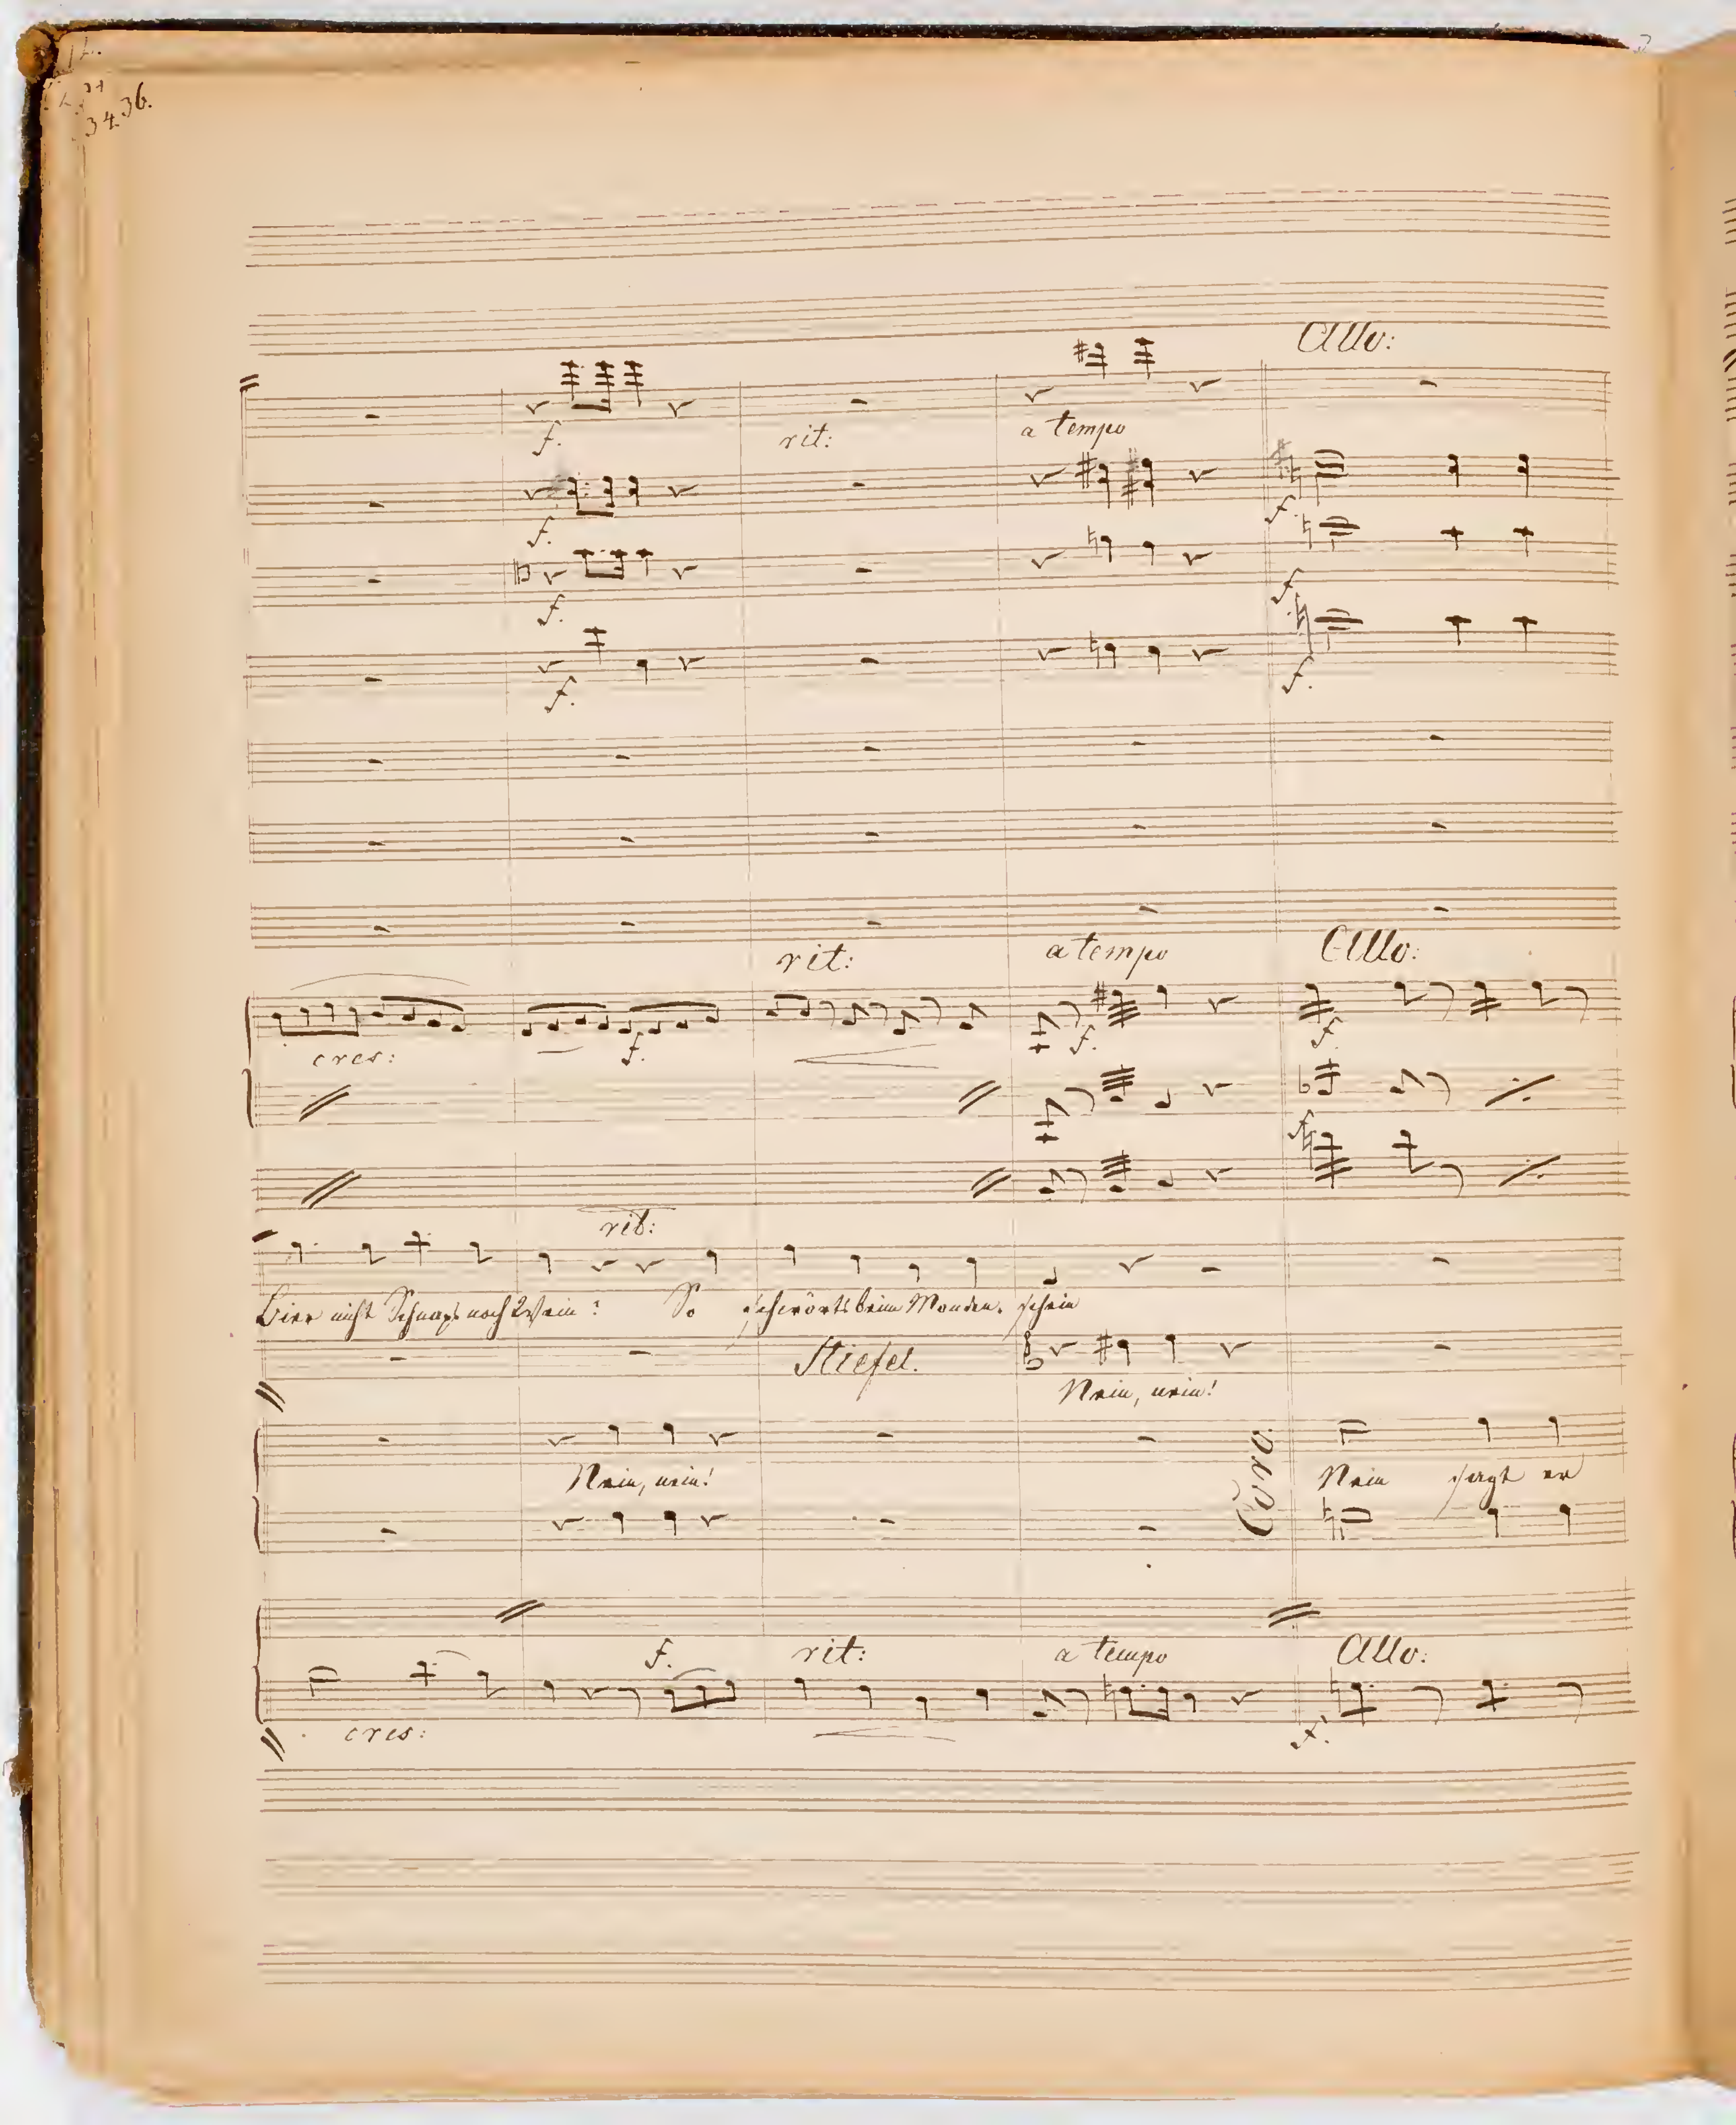 34.36.
Allo:
f.
rit:
a tempo
f.
f.
f.
f.
f.
f.
rit:
a tempo
Allo:
cres:
f.
f.
f.
f.
rit:
Bier nicht Schnaps noch Wein? So schwörts beim Monden-schein
Stiefel.
Nein, nein!
Nein, nein!
Coro.
Nein sagt er
f.
rit:
a tempo
Allo:
cres:
f.